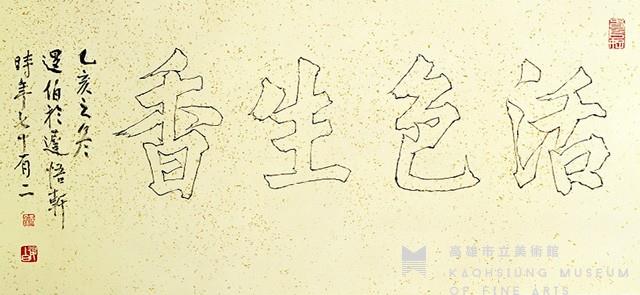 活色生香
乙亥之冬
伯於悟軒
時年七十有二
高雄市立美術館
KAOHSIUNG MUSEUM
OF FINE ARTS